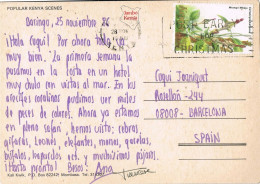 POPULAR KENYA SCENES
Baringo, 25 noviembre 86
¡Hola Coqui! Por ahora todo
muy bien. La primera semana la
pasamos en la costa en un hotel
muy chulo con vistas al mar. En los
arrecifes coralinos vimos miles
de peces de colores. Ahora ya estamos
en plena safari, hemos visto: cebras,
jirafas, Leones, elefantes, monos, gacelas,
búfalos, leopardos ect. y muchísimos pájaros.
¡Hasta pronto! Besos: Ana
POST EARLY
FOR
CHRISTMAS
Coqui
Rosellón - 244
08008 - BARCELONA
SPAIN